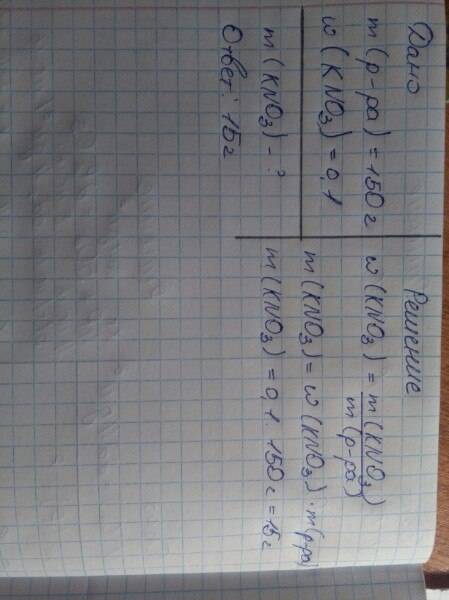 Дано
m (р-ра) = 150 г
w (KNO₃) = 0,1
m (KNO₃) - ?
Ответ: 15 г
Решение
w (KNO₃) = m (KNO₃) / m (р-ра)
m (KNO₃) = w (KNO₃) · m (р-ра)
m (KNO₃) = 0,1 · 150 г = 15 г